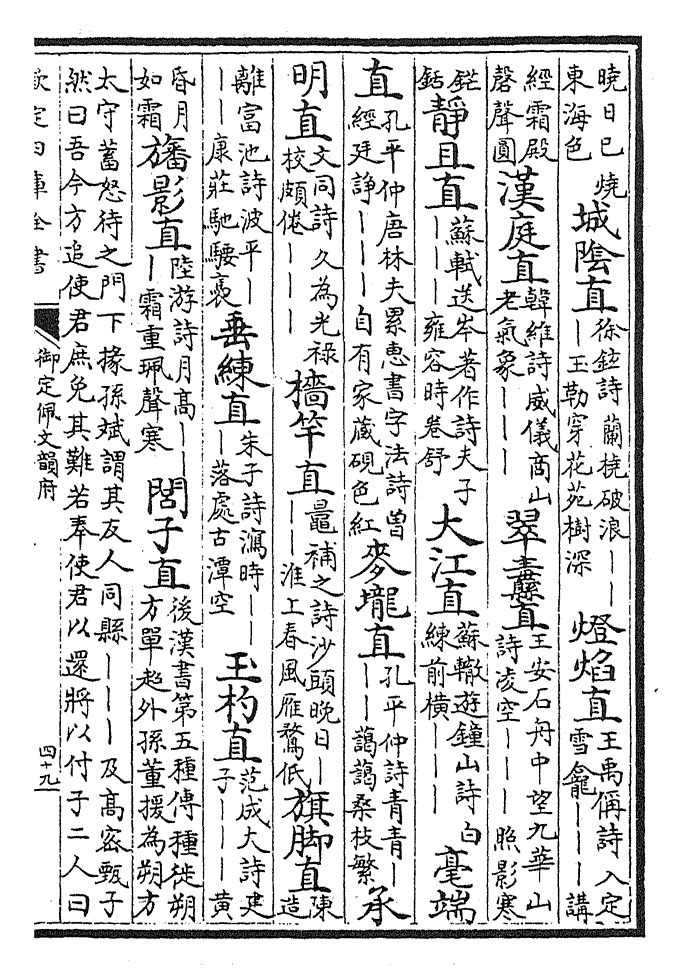 曉日已燒東海色城陰直徐鉉詩蘭橈破浪｜｜｜玉勒穿花苑樹深燈焰直王禹偁詩入定雪龕｜｜｜講
經霜殿磬聲圓漢庭直韓維詩威儀商山老氣象｜｜｜翠纛直王安石舟中望九華山詩凌空｜｜｜照影寒
鋩銛靜且直蘇軾送岑著作詩夫子｜｜｜雍容時卷舒大江直蘇轍遊鐘山詩白練前橫｜｜｜毫端
直孔平仲唐林夫累惠書字法詩曾經廷諍｜｜｜自有家藏硯色紅麥壠直孔平仲詩青青｜｜｜藹藹桑枝繁承
明直文同詩久為光祿校頗倦｜｜｜檣竿直鼂補之詩沙頭晚日｜｜｜淮上春風雁鶩低旗脚直陳造
離富池詩波平｜｜｜康莊馳騕褭垂練直朱子詩瀉時｜｜｜落處古潭空玉杓直范成大詩建子｜｜｜黃
昏月如霜旛影直陸游詩月高｜｜｜霜重珮聲寒閭子直後漢書第五種傳種徙朔方單超外孫董援為朔方
太守蓄怒待之門下掾孫斌謂其友人同縣｜｜｜及高密甄子
然曰吾今方追使君庶免其難若奉使君以還將以付子二人曰
欽定四庫全書
御定佩文韻府
四十九